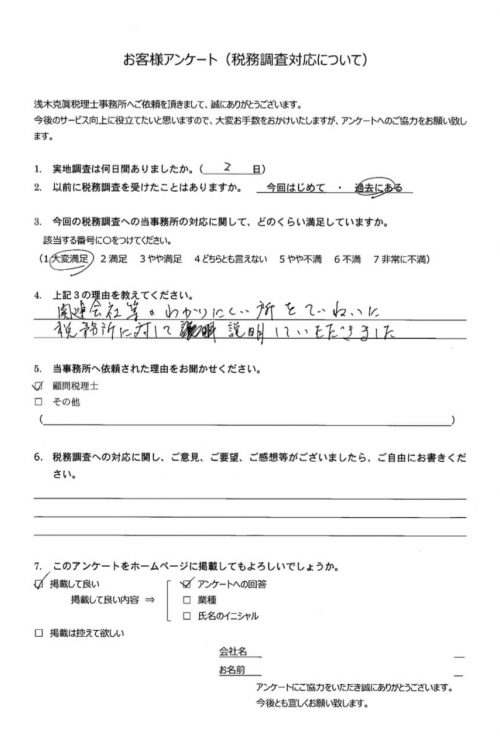 お客様アンケート（税務調査対応について）
浅木克眞税理士事務所へご依頼を頂きまして、誠にありがとうございます。
今後のサービス向上に役立てたいと思いますので、大変お手数をおかけいたしますが、アンケートへのご協力をお願い致し
ます。
1. 実地調査は何日間ありましたか。（ 2 日）
2. 以前に税務調査を受けたことはありますか。 今回はじめて ・ 過去にある
3. 今回の税務調査への当事務所の対応に関して、どのくらい満足していますか。
該当する番号に○をつけてください。
（1 大変満足 2 満足 3 やや満足 4 どちらとも言えない 5 やや不満 6 不満 7 非常に不満）
4. 上記3の理由を教えてください。
関連会社等のわかりにくい所をていねいに
税務所に対して 説明していただきました
5. 当事務所へ依頼された理由をお聞かせください。
☑ 顧問税理士
□ その他
（ ）
6. 税務調査への対応に関し、ご意見、ご要望、ご感想等がございましたら、ご自由にお書きくだ
さい。
7. このアンケートをホームページに掲載してもよろしいでしょうか。
☑ 掲載して良い ☑ アンケートへの回答
掲載して良い内容 ⇒ □ 業種
□ 氏名のイニシャル
□ 掲載は控えて欲しい
会社名
お名前
アンケートにご協力をいただき誠にありがとうございます。
今後とも宜しくお願い致します。